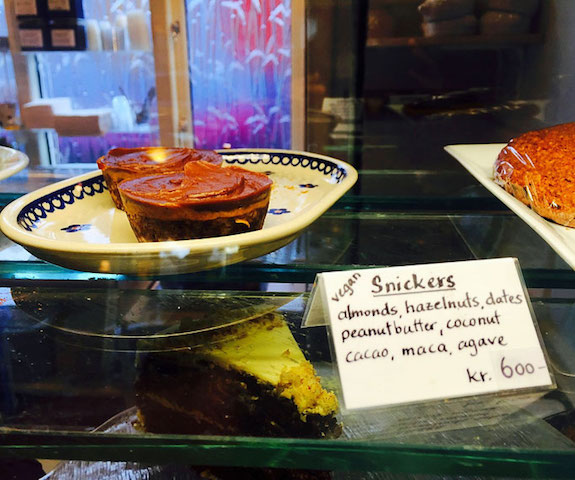 vegan Snickers
almonds, hazelnuts, dates
peanutbutter, coconut
cacao, maca, agave
kr. 600-